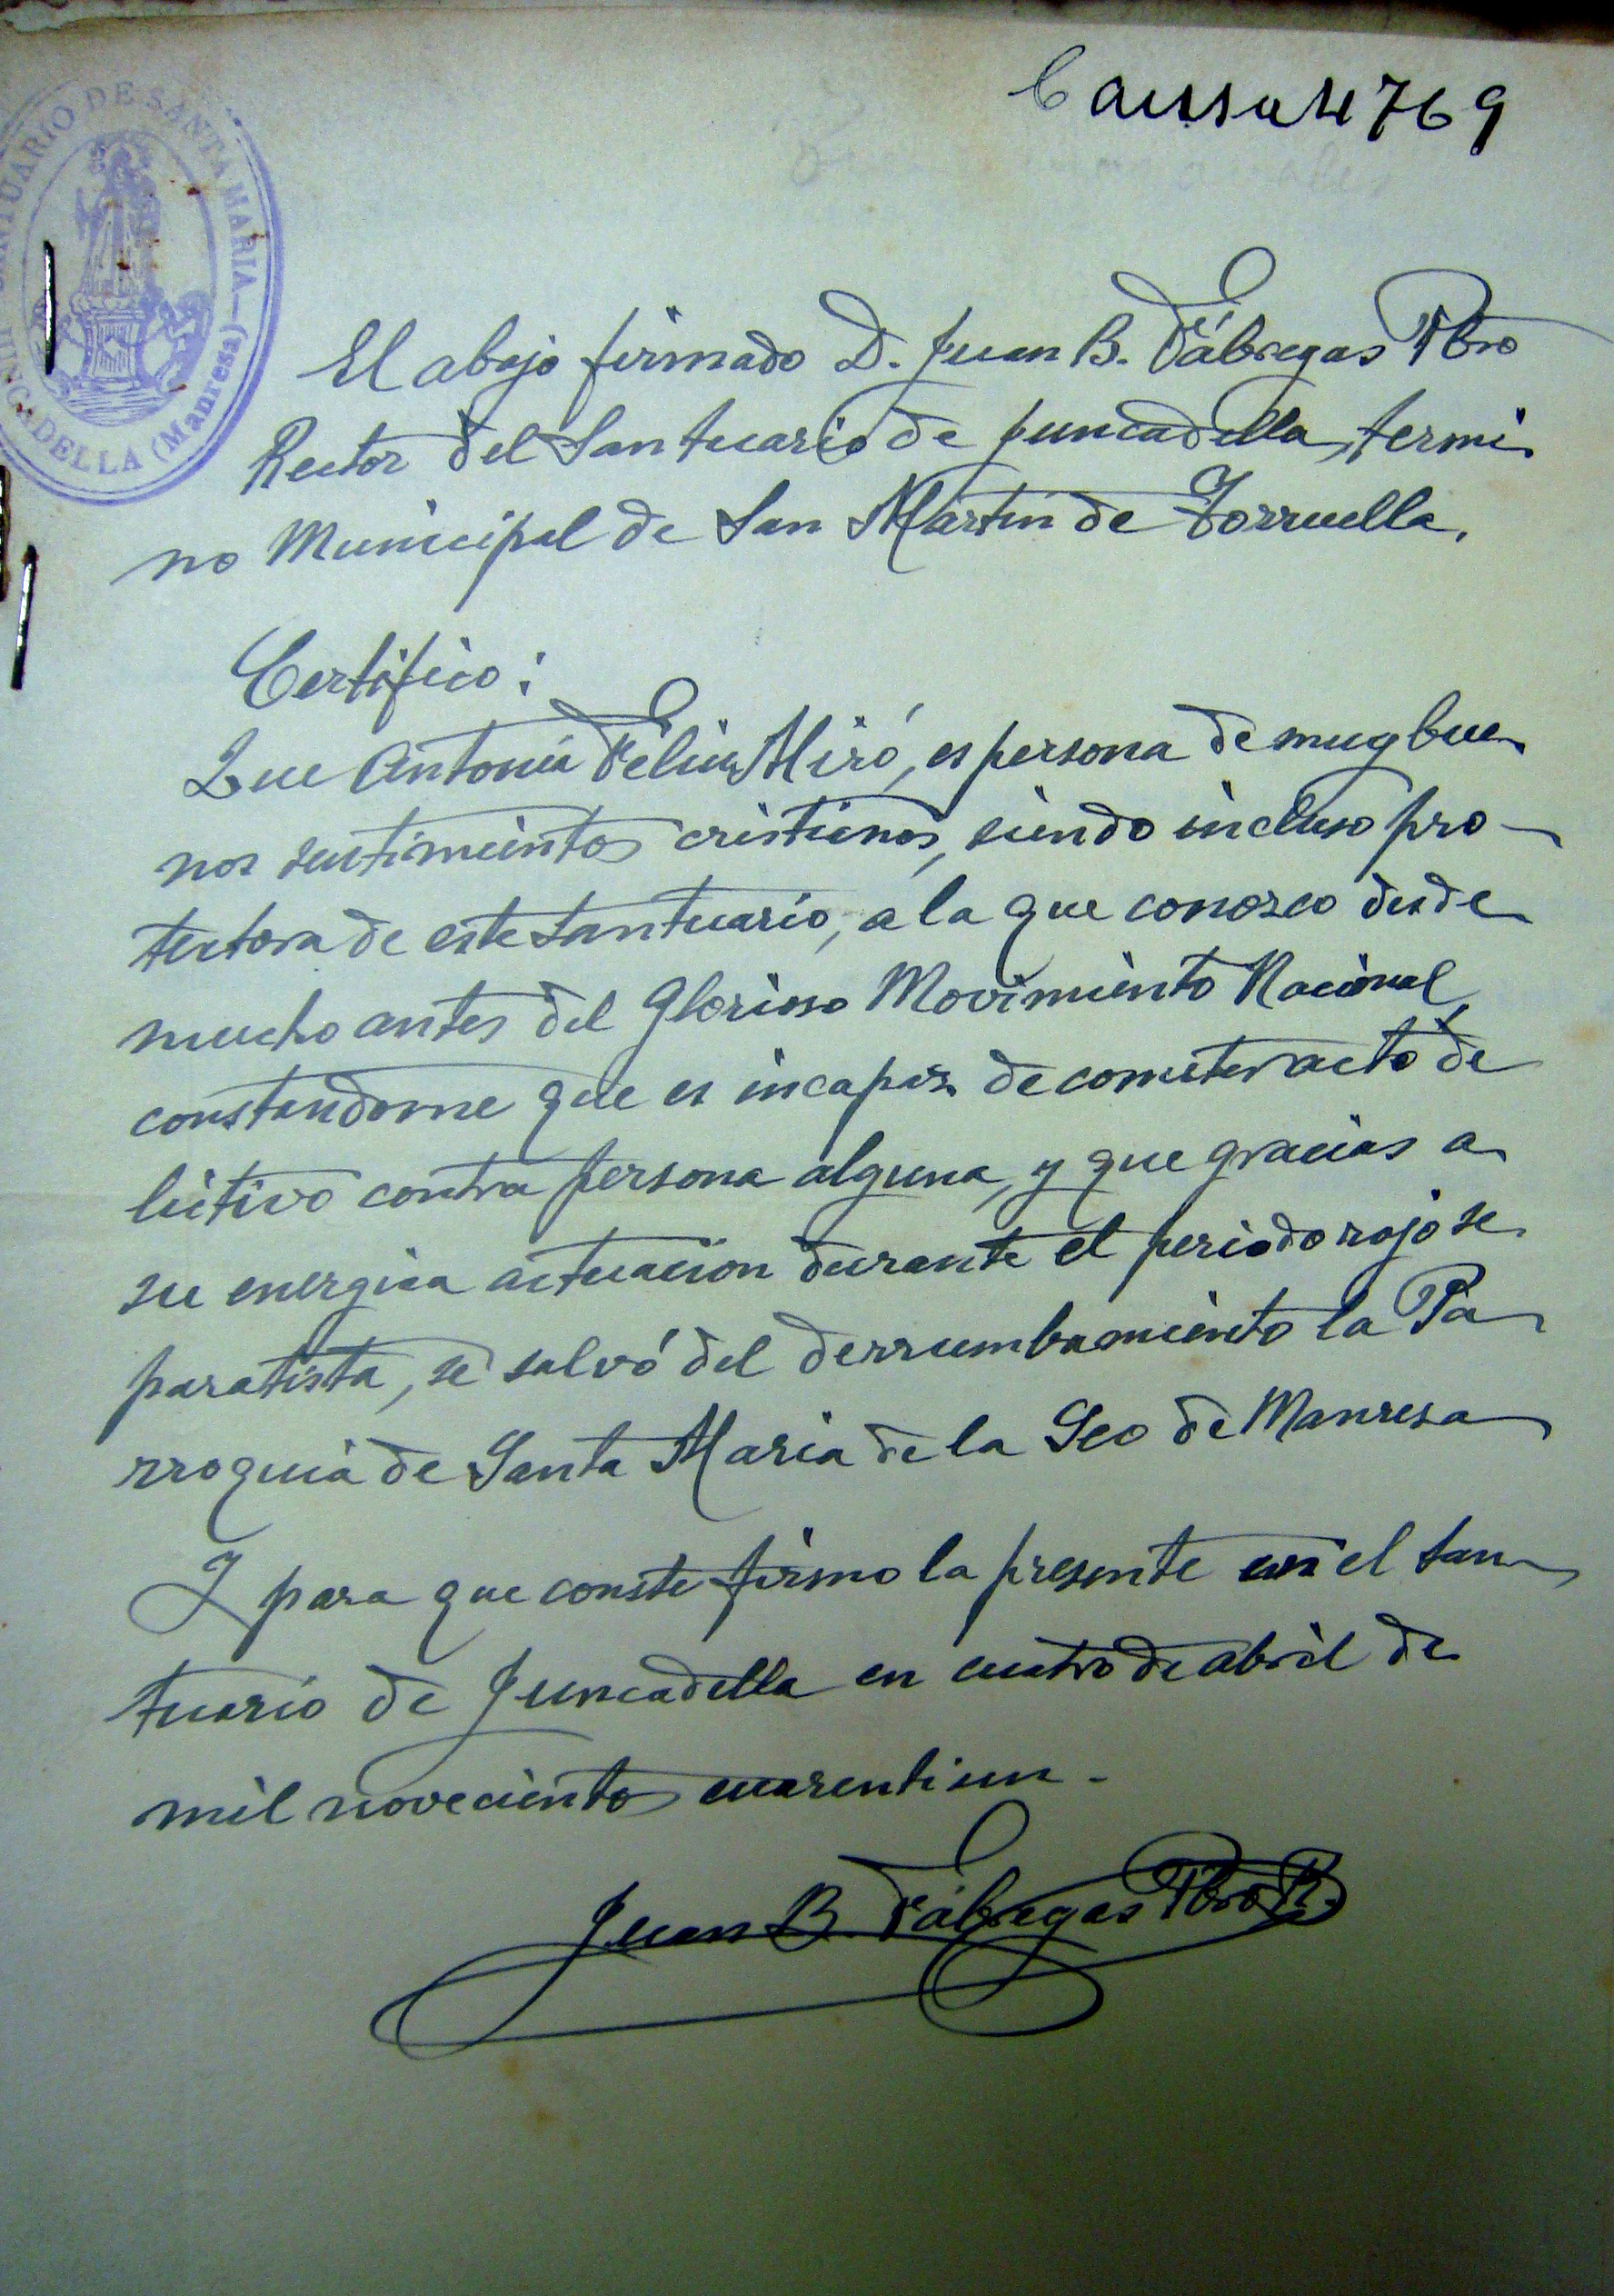 Causa 4769
SANTUARIO DE SANTA MARIA
JUNCADELLA (Manresa)
El abajo firmado D. Juan B. Fábregas Pbro
Rector del Santuario de Juncadella, termi
no Municipal de San Martín de Torruella.
Certifico:
Que Antonia Feliu Miró, es persona de muy bue
nos sentimientos cristianos, siendo incluso pro-
tectora de este Santuario, a la que conozco desde
mucho antes del Glorioso Movimiento Nacional,
constandome que es incapaz de cometer acto de
lictivo contra persona alguna, y que gracias a
su energica actuación durante el periodo rojo se
paratista, se salvó del derrumbamiento la Pa
rroquia de Santa Maria de la Seo de Manresa
Y para que conste firmo la presente en el San
tuario de Juncadella en cuatro de abril de
mil novecientos cuarentiun.
Juan B. Fábregas Pbro R.